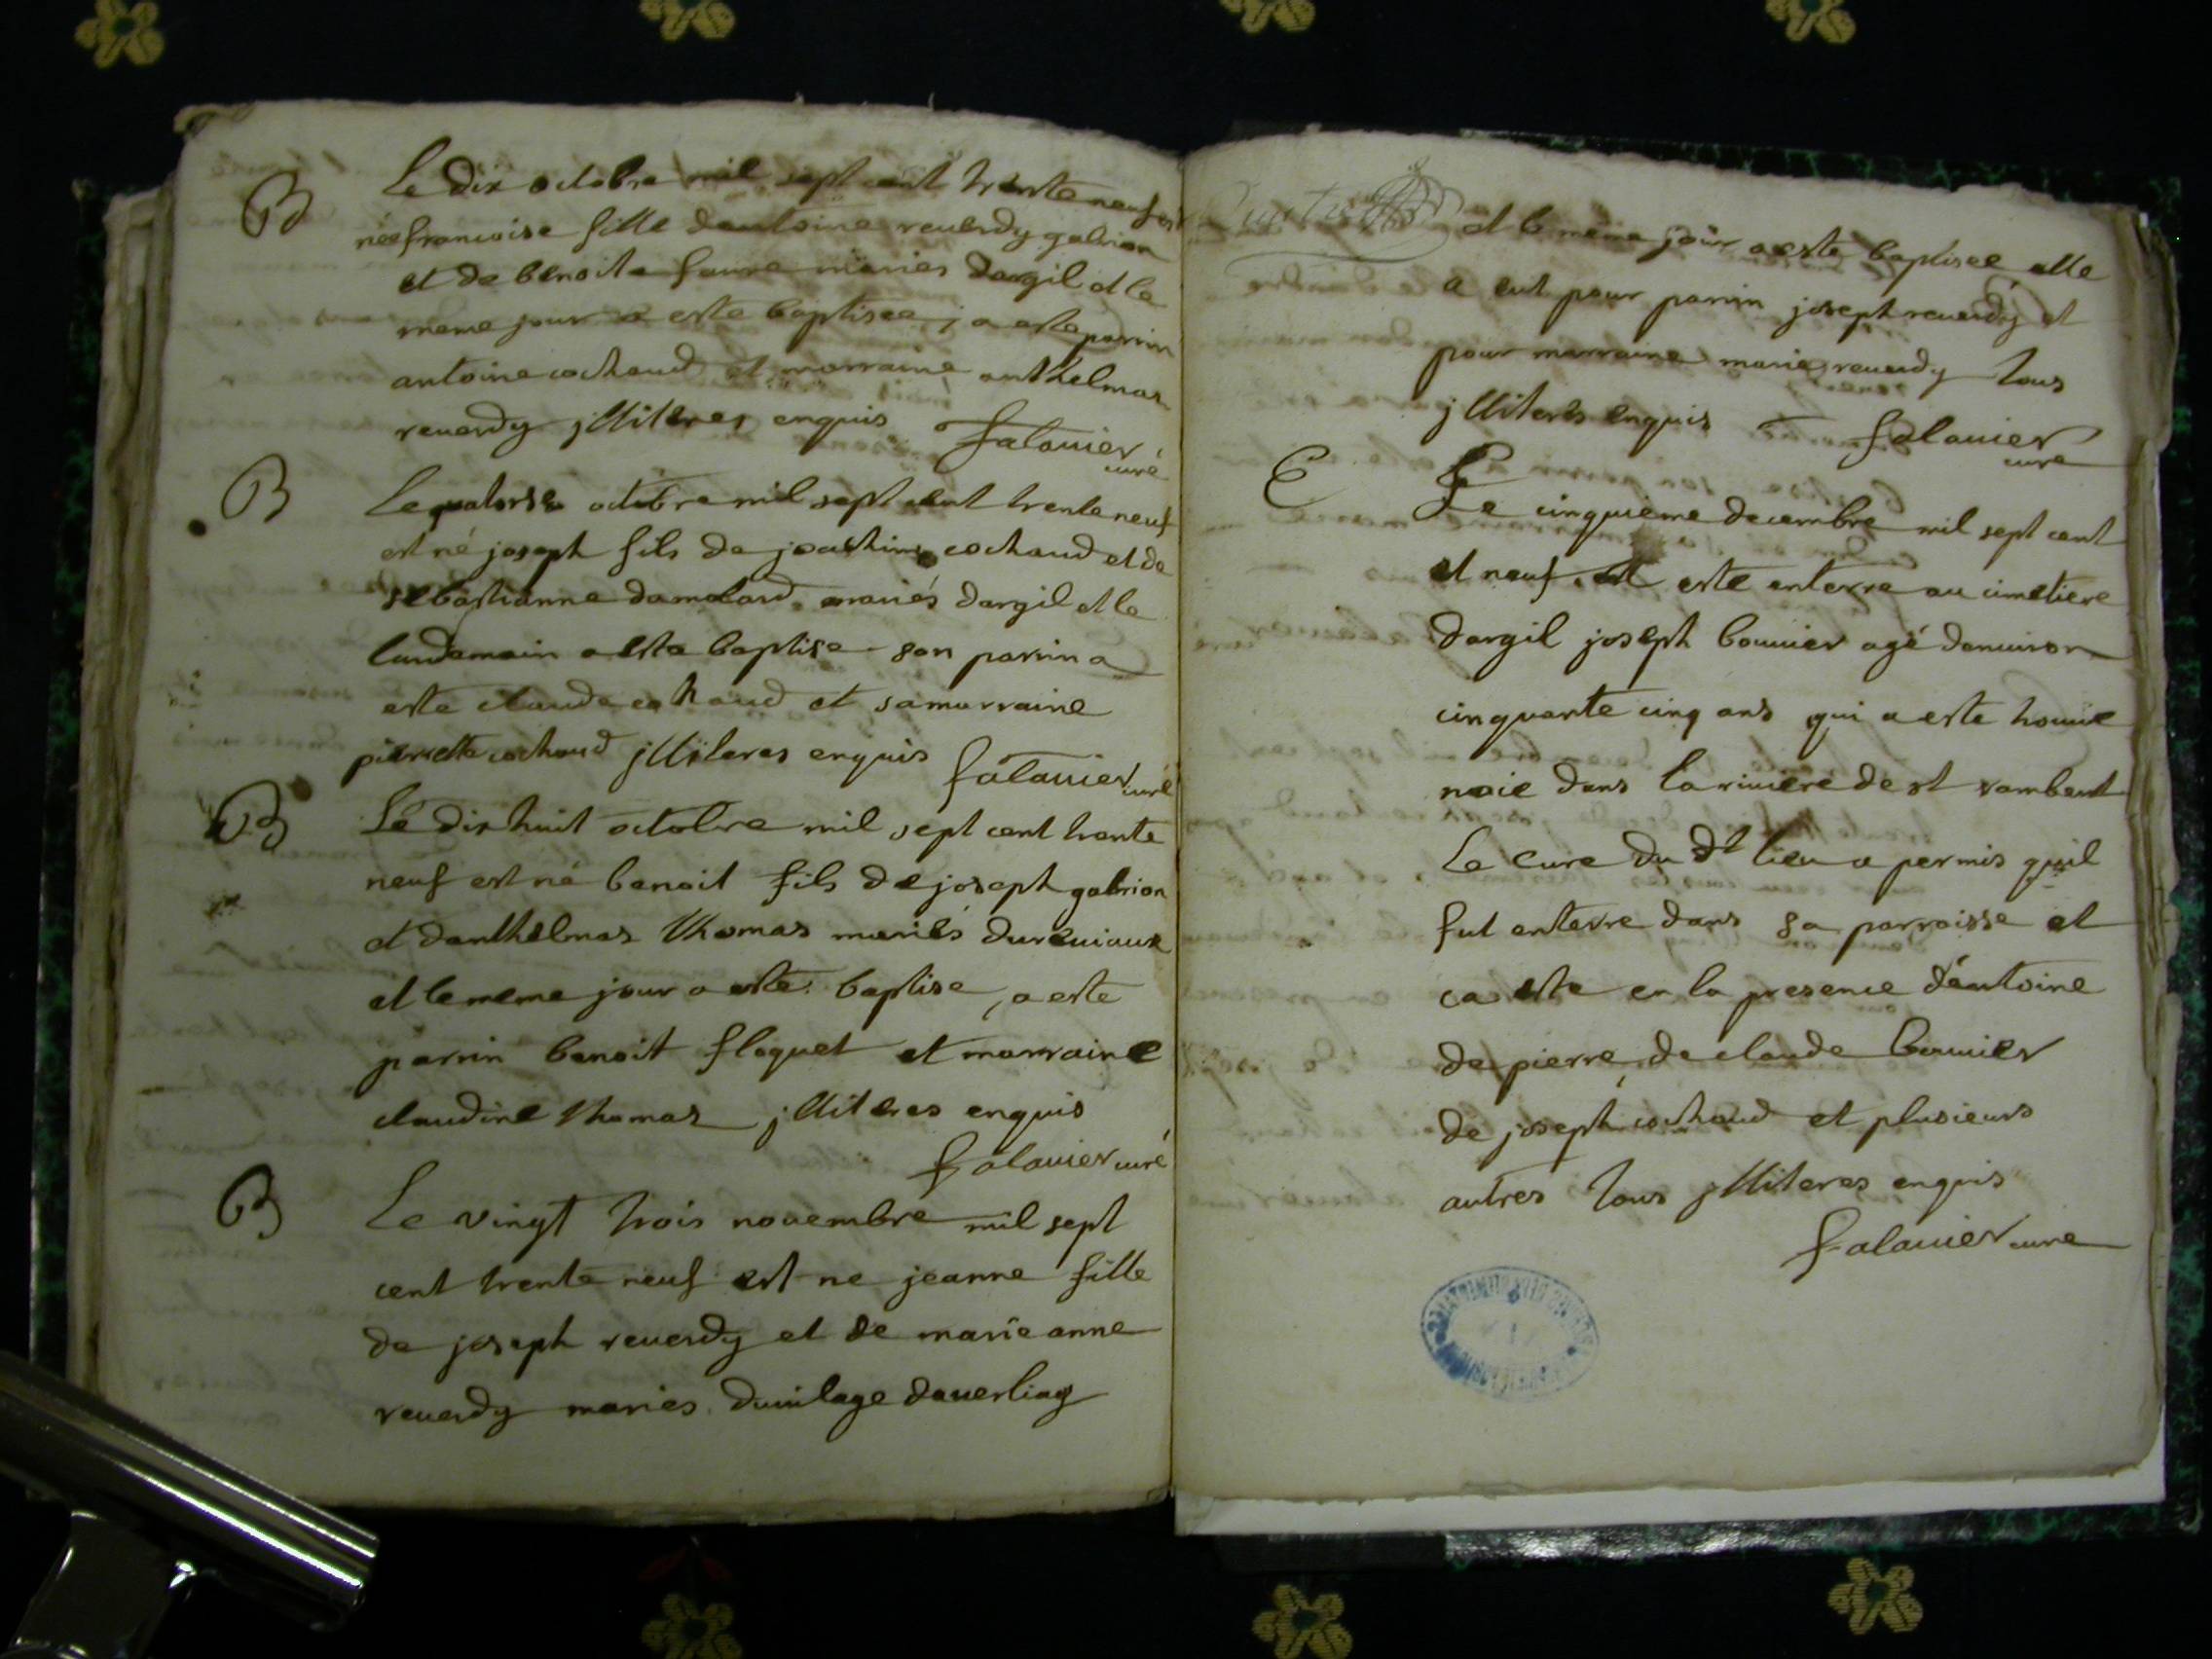 B
Le dix octobre mil sept cent trente neuf est
née francoise fille dantoine reuerdy gabrion
et de benoite faure mariés dargil et le
meme jour a este baptisee, j a este parrin
antoine cochaud et marraine anthelmas
reuerdy jlliteres enquis falauier
curé
B
Le quatorse octobre mil sept cent trente neuf
est né joseph fils de joachim cochaud et de
sebastianne damolard mariés dargil et le
landemain a este baptise son parrin a
este claude cohaud et sa marraine
pierrette cochaud jlliteres enquis falauier curé
B
Le dix huit octobre mil sept cent trente
neuf est né benoit fils de joseph gabrion
et danthelmas thomas mariés
et le meme jour a este baptise, a este
parrin benoit floquet et marraine
claudine thomas jlliteres enquis
falauier curé
B
Le vingt trois nouembre mil sept
cent trente neuf est ne jeanne fille
de joseph reuerdy et de marie anne
reuerdy mariés du uilage dauerliaz
et le meme jour a este baptisée elle
a eut pour parrin joseph reuerdy et
pour marraine marie reuerdy tous
jlliterés enquis falauier
cure
E
Le cinquième decembre mil sept cent
et neuf este enterre au cimetiere
dargil joseph bouuier agé denuiron
cinquante cinq ans qui a este
noié dans la riuiere de st rambert
Le cure du dt lieu a permis quil
fut enterre dans sa parroisse et
ca este en la presence dantoine
de pierre de claude bouuier
de joseph cochaud et plusieurs
autres tous jlliteres enquis
falauier cure